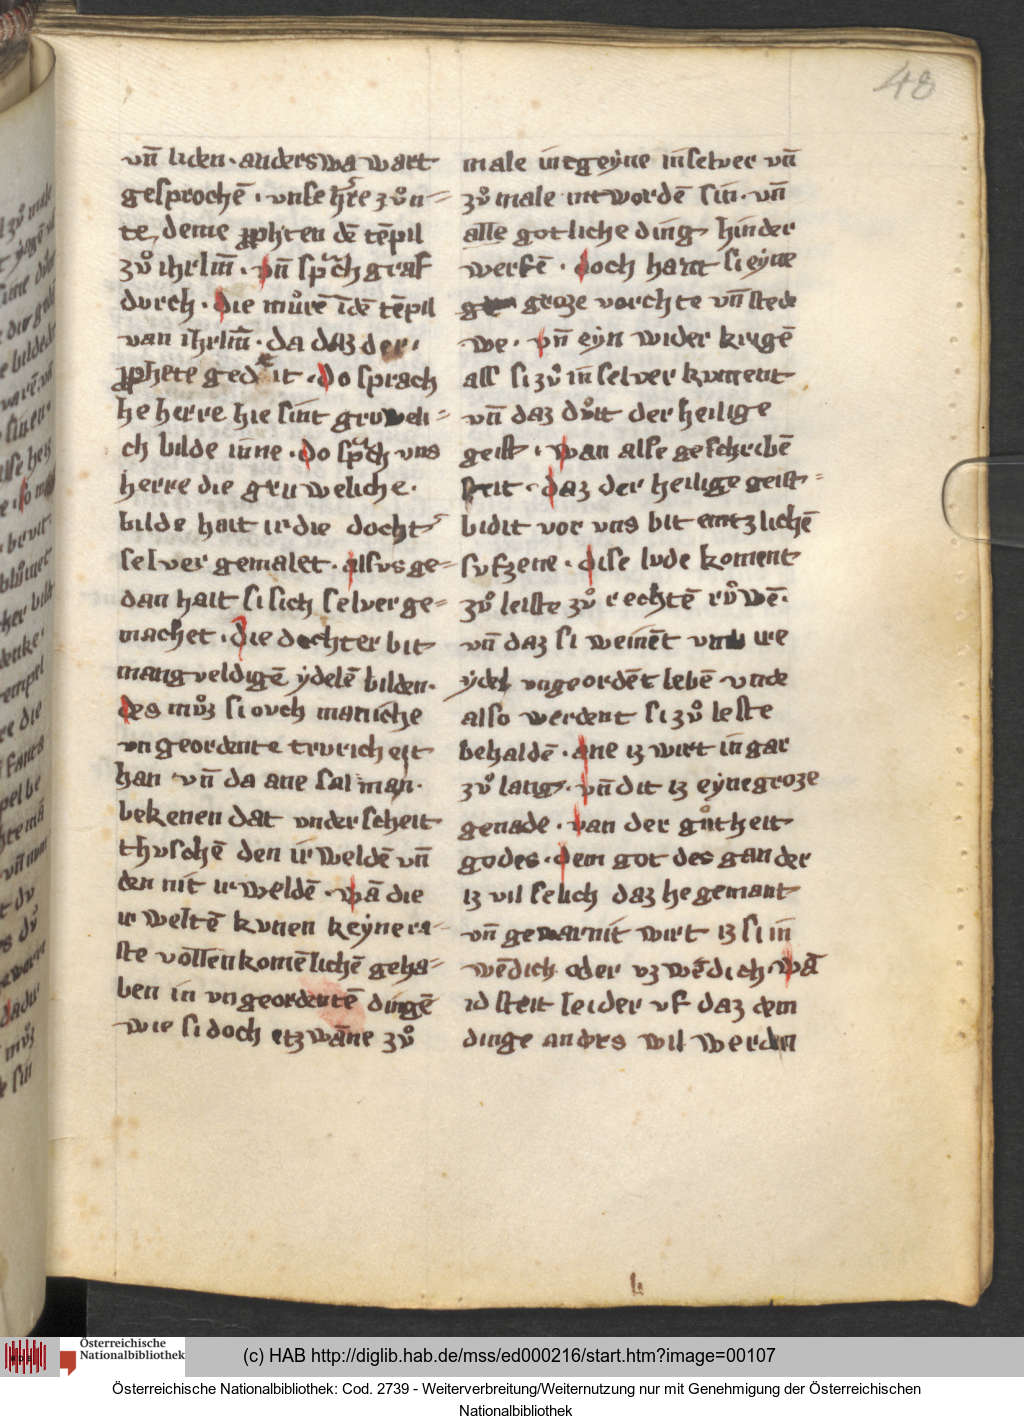 48
vn̄ liden · anderswa wart
gesprochē · vnse h̄re zvͦn=
te, deme ꝓph'ten dē tēpil
zvͦ ihrlm̄ · vn̄ sp̄ch graf
dvrch · die mvͦrē īdē tēpil
van ihrlm̄ · da daz der ·
ꝓphete ged it · do sprach
he herre hie sint grvweli=
ch bilde inne · do sp̄ch vns
herre die grvweliche ·
bilde hait ir die docht'
selver gemalet · alsvs ge=
dan hait si sich selver ge=
machet · die dochter bit
mangveldigē ẏdelē bilden ·
des mvͦz si ovch maniche
vngeordente trvricheit
han vn̄ da ane sal man ·
bekenen dat vnderscheit
thvschē den irweldē vn̄
den nit irweldē · wā die
irweltē kvnen keẏne ra=
ste vollenkomēlichē geha=
ben in vngeordentē dingē
wie si doch etzwāne zvͦ
male intgeẏne inselver vn̄
zvͦ male intwordē sin · vn̄
alle gotliche ding hinder
werfē · doch hant si eẏne
groze vorchte vn̄ stede
we · vn̄ eẏn wider krigē
als si zvͦ in selver kvment
vn̄ daz dvͦit der heilige
geist · wan alse geschribē
steit · daz der heilige geist=
bidit vor vns bit emtzlichē
svfzene · dise lvde koment
zvͦ leiste zvͦ rechtē rvͦwē ·
vn̄ daz si weinēt vmb ire
ẏdel vngeordēt lebē vnde
also werdent si zvͦ leste
behaldē · ane iz wirt in gar
zvͦ lang · vn̄ dit iz eẏne groze
genade · van der gvͦtheit
godes · dem got des gander
iz vil selich daz he gemant
vn̄ gewarnit wirt iz si in
wēdich oder vzwēdich · wā
id steit leider vf daz dem
dinge anders wil werden
(c) HAB http://diglib.hab.de/mss/ed000216/start.htm?image=00107
Österreichische
Nationalbibliothek
Österreichische Nationalbibliothek: Cod. 2739 - Weiterverbreitung/Weiternutzung nur mit Genehmigung der Österreichischen
Nationalbibliothek